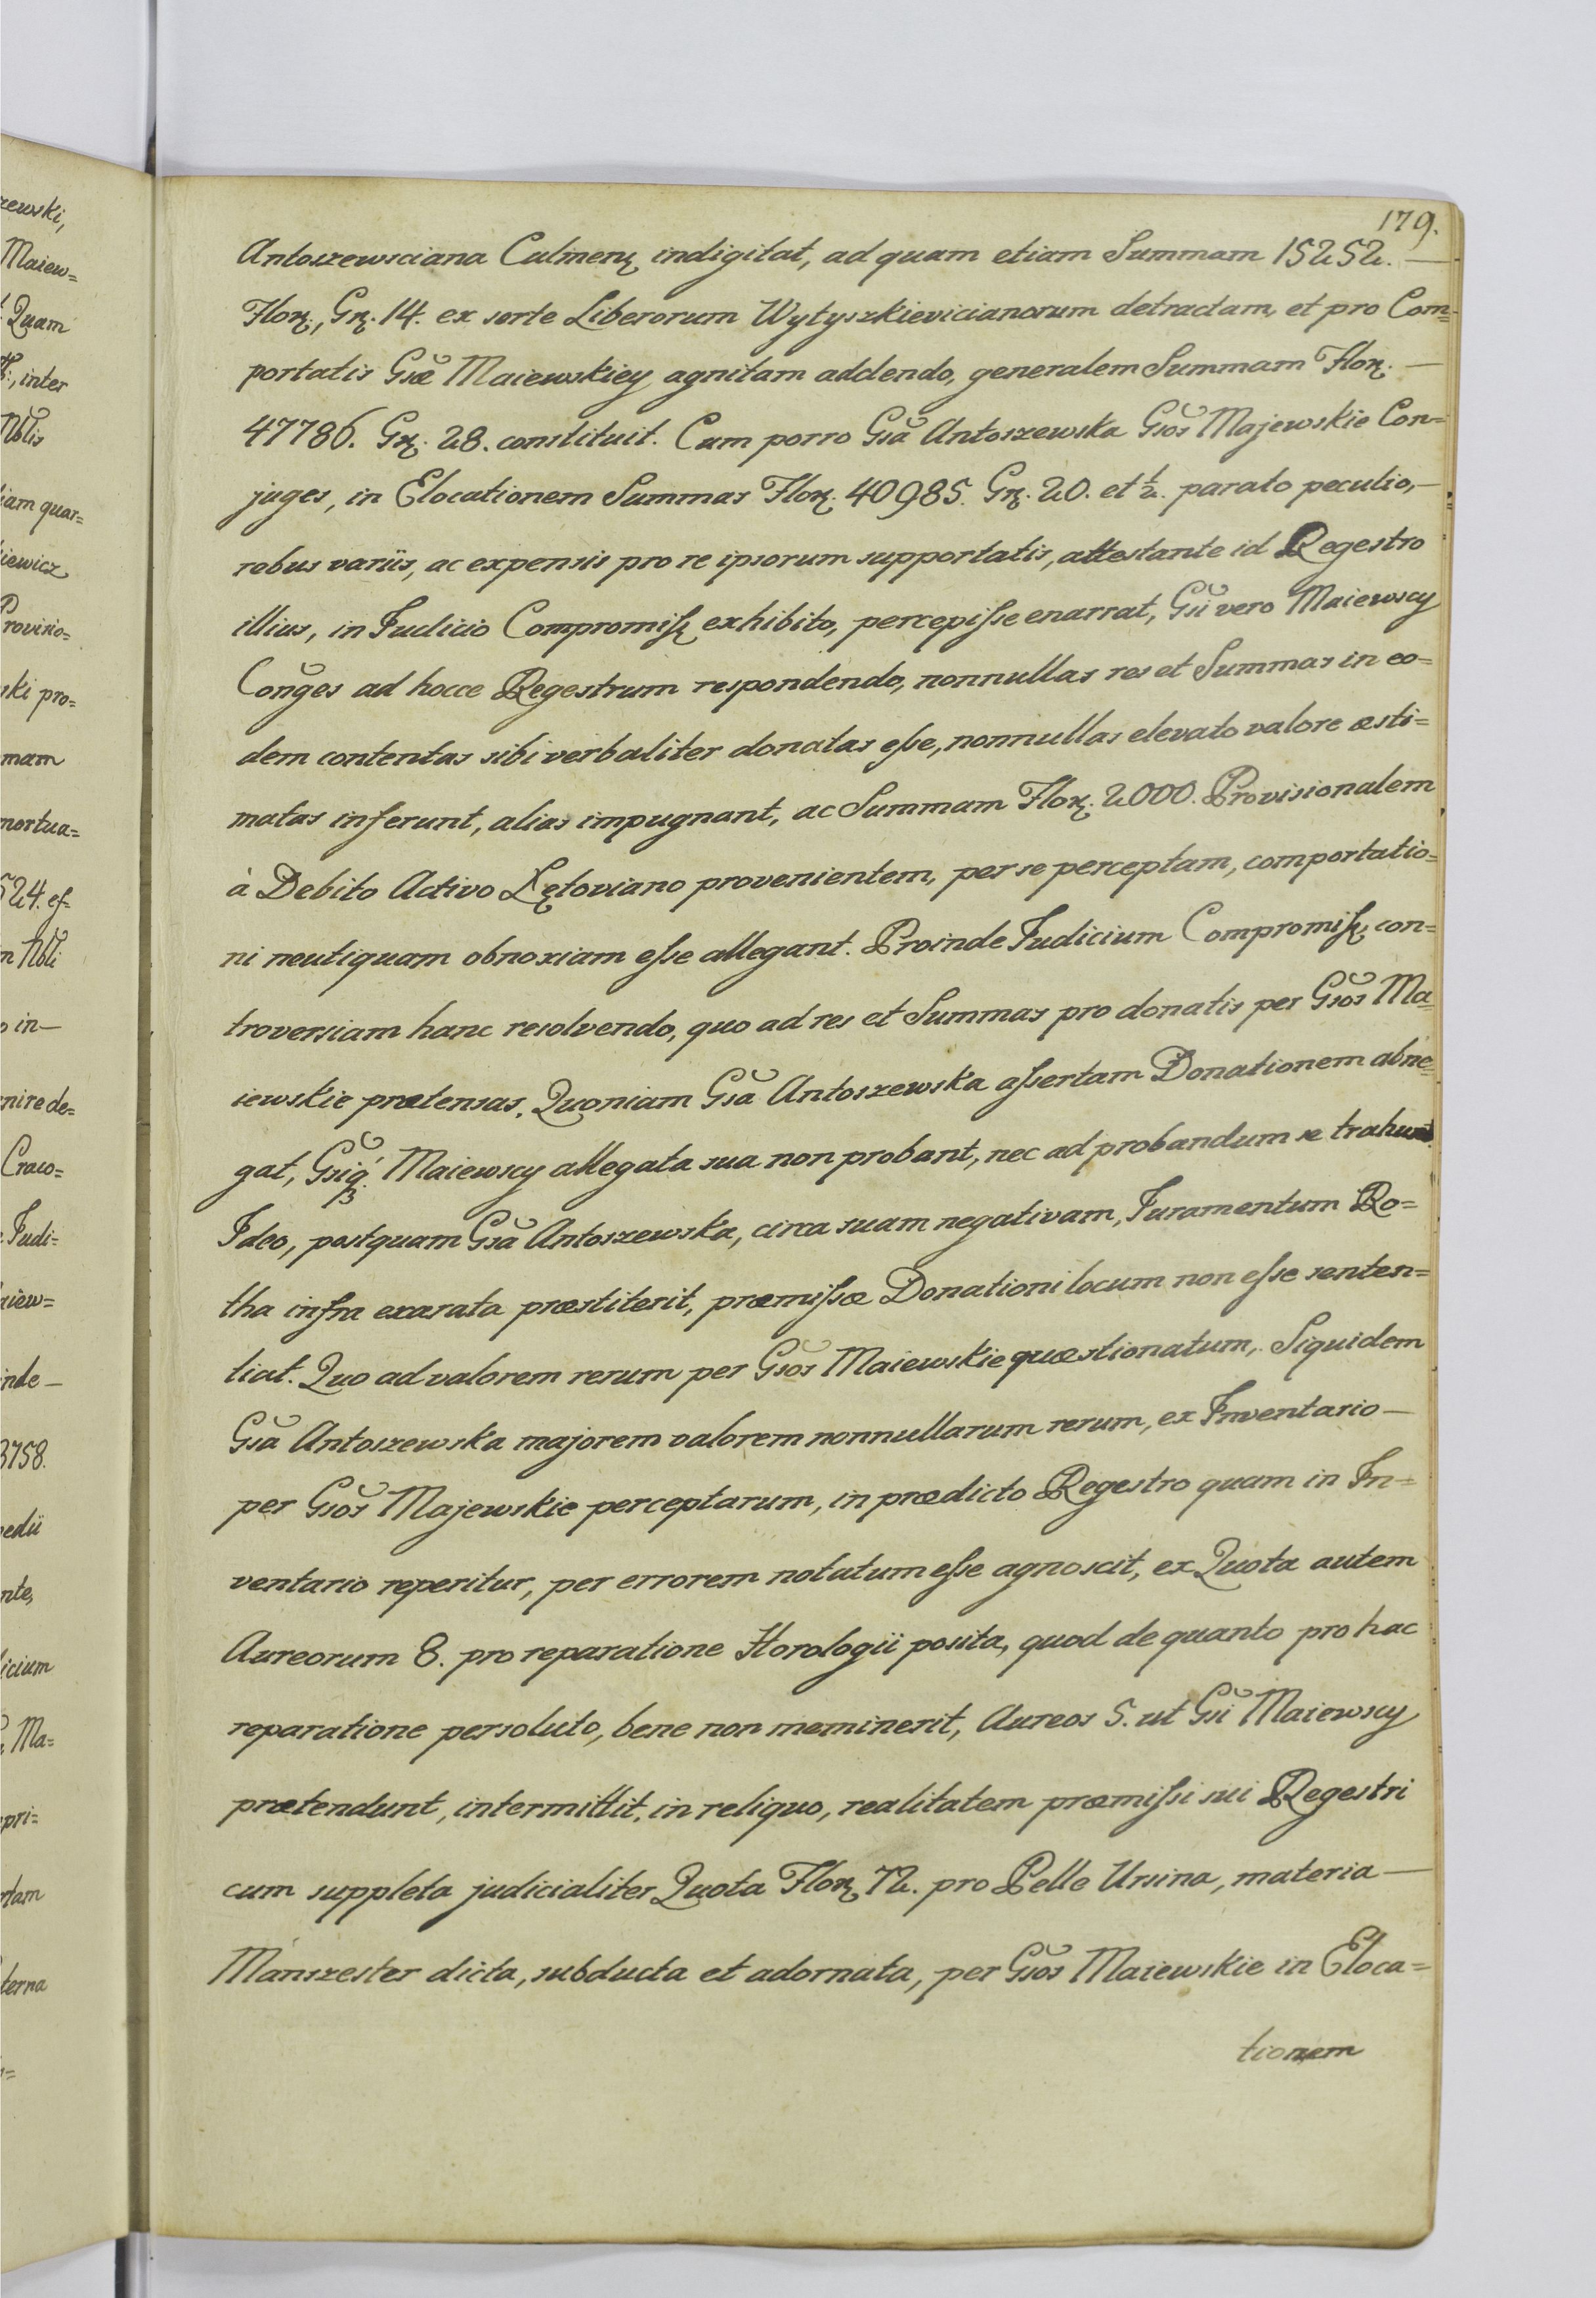 179.
Antoszewsciana Culmenq indigitat, ad quam etiam Summam 15252. —
Florꝝ, Grꝝ. 14. ex sorte Liberorum Wytyszkievicianorum detractam, et pro Com=
portatis Gsæ̆ Maiewskiey agnitam addendo, generalem Summam Florꝝ. —
47786. Grꝝ. 28. constituit. Cum porro Gsă Antoszewska Gsŏs Majewskie Con=
juges, in Elocationem Summas Florꝝ. 40985. Grꝝ. 20. et ½. parato peculio, —
rebus variis, ac expensis pro re ipsorum supportatis, attestante id Regestro
illius, in Judicio Compromißꝝ exhibito, percepiſse enarrat, Gsĭi vero Maiewscy
Conğes ad hocce Regestrum respondendo, nonnullas res et Summas in eo=
dem contentas sibi verbaliter donatas eſse, nonnullas elevato valore æsti=
matas inferunt, alias impugnant, ac Summam Florꝝ. 2000. Provisionalem
à Debito Activo Lętoviano provenientem, per se perceptam, comportatio=
ni neutiquam obnoxiam eſse allegant. Proinde Judicium Compromiſsꝝ con=
troversiam hanc resolvendo, quo ad res et Summas pro donatis per Gsŏs Ma=
iewskie prætensas. Quoniam Gsă Antoszewska aſsertam Donationem abne=
gat, Gsĭiqꝫ Maiewscy allegata sua non probant, nec ad probandum se trahunt.
Ideo, postquam Gsă Antoszewska, circa suam negativam, Juramentum Ro=
tha infra exarata præstiterit, præmiſsæ Donationi locum non eſse senten=
tiat. Quo ad valorem rerum per Gsŏs Maiewskie quæstionatum, Siquidem
Gsă Antoszewska majorem valorem nonnullarum rerum, ex Inventario —
per Gsŏs Majewskie perceptarum, in prædicto Regestro quam in In=
ventario reperitur, per errorem notatum eſse agnoscit, ex Quota autem
Aureorum 8. pro reparatione Horologii posita, quod de quanto pro hac
reparatione persoluto, bene non meminerit, Aureos 5. ut Gsĭi Maiewscy
prætendunt, intermittit, in reliquo, realitatem præmiſsi sui Regestri
cum suppleta judicialiter Quota Florꝝ 72. pro Pelle Ursina, materia —
Mánszester dicta, subducta et adornata, per Gsŏs Maiewskie in Eloca=
tionem
zewski,
Maiew=
Quam
inter
Nb̆lis
iam quar=
iewicz
Provisio=
ski pro=
mam
mortua=
524. eſ=
m Nb̆li
o in —
nire de=
Craco=
Judi=
aiew=
inde —
3758.
pedii
nte,
dicium
Ma=
pri=
rtam
terna